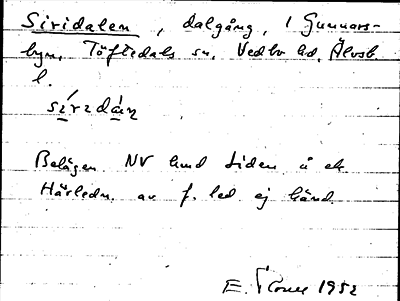 Siridalen, dalgång, i Gunnars-
byn, Töftedals sn, Vedbo hd, Älvsb.
l.
sírzdáṇ
Belägen NV und Liden å ek
Härledn. av f. led ej känd.
E. 1952